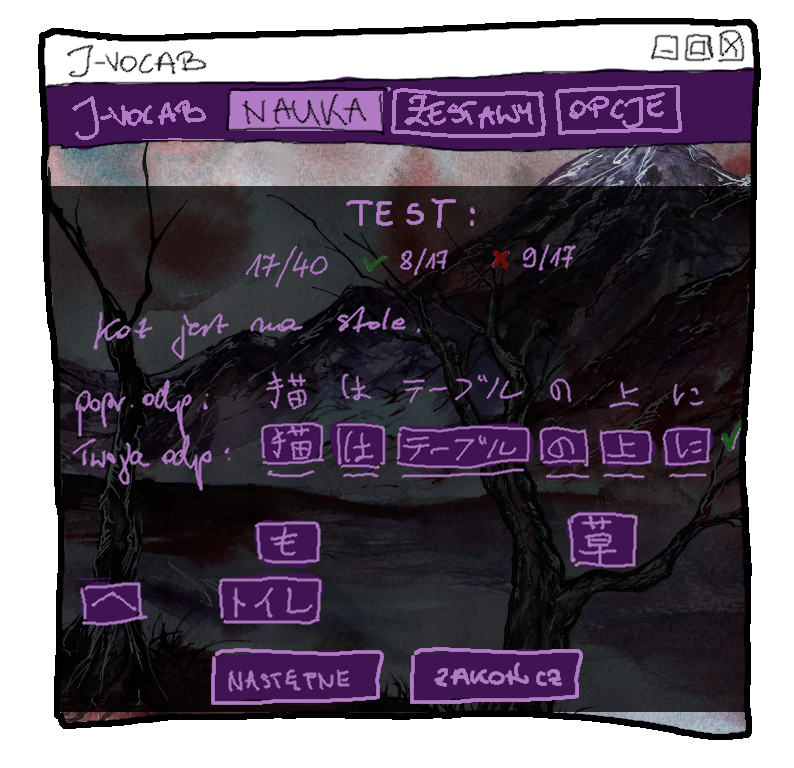 J-VOCAB
J-VOCAB NAUKA ZESTAWY OPCJE
TEST:
17/40 8/17 9/17
Kot jest na stole.
popr. odp.: 描 は テーブル の 上 に
Twoja odp: 描 は テーブル の 上 に
も 草
へ トイレ
NASTĘPNE ZAKOŃCZ